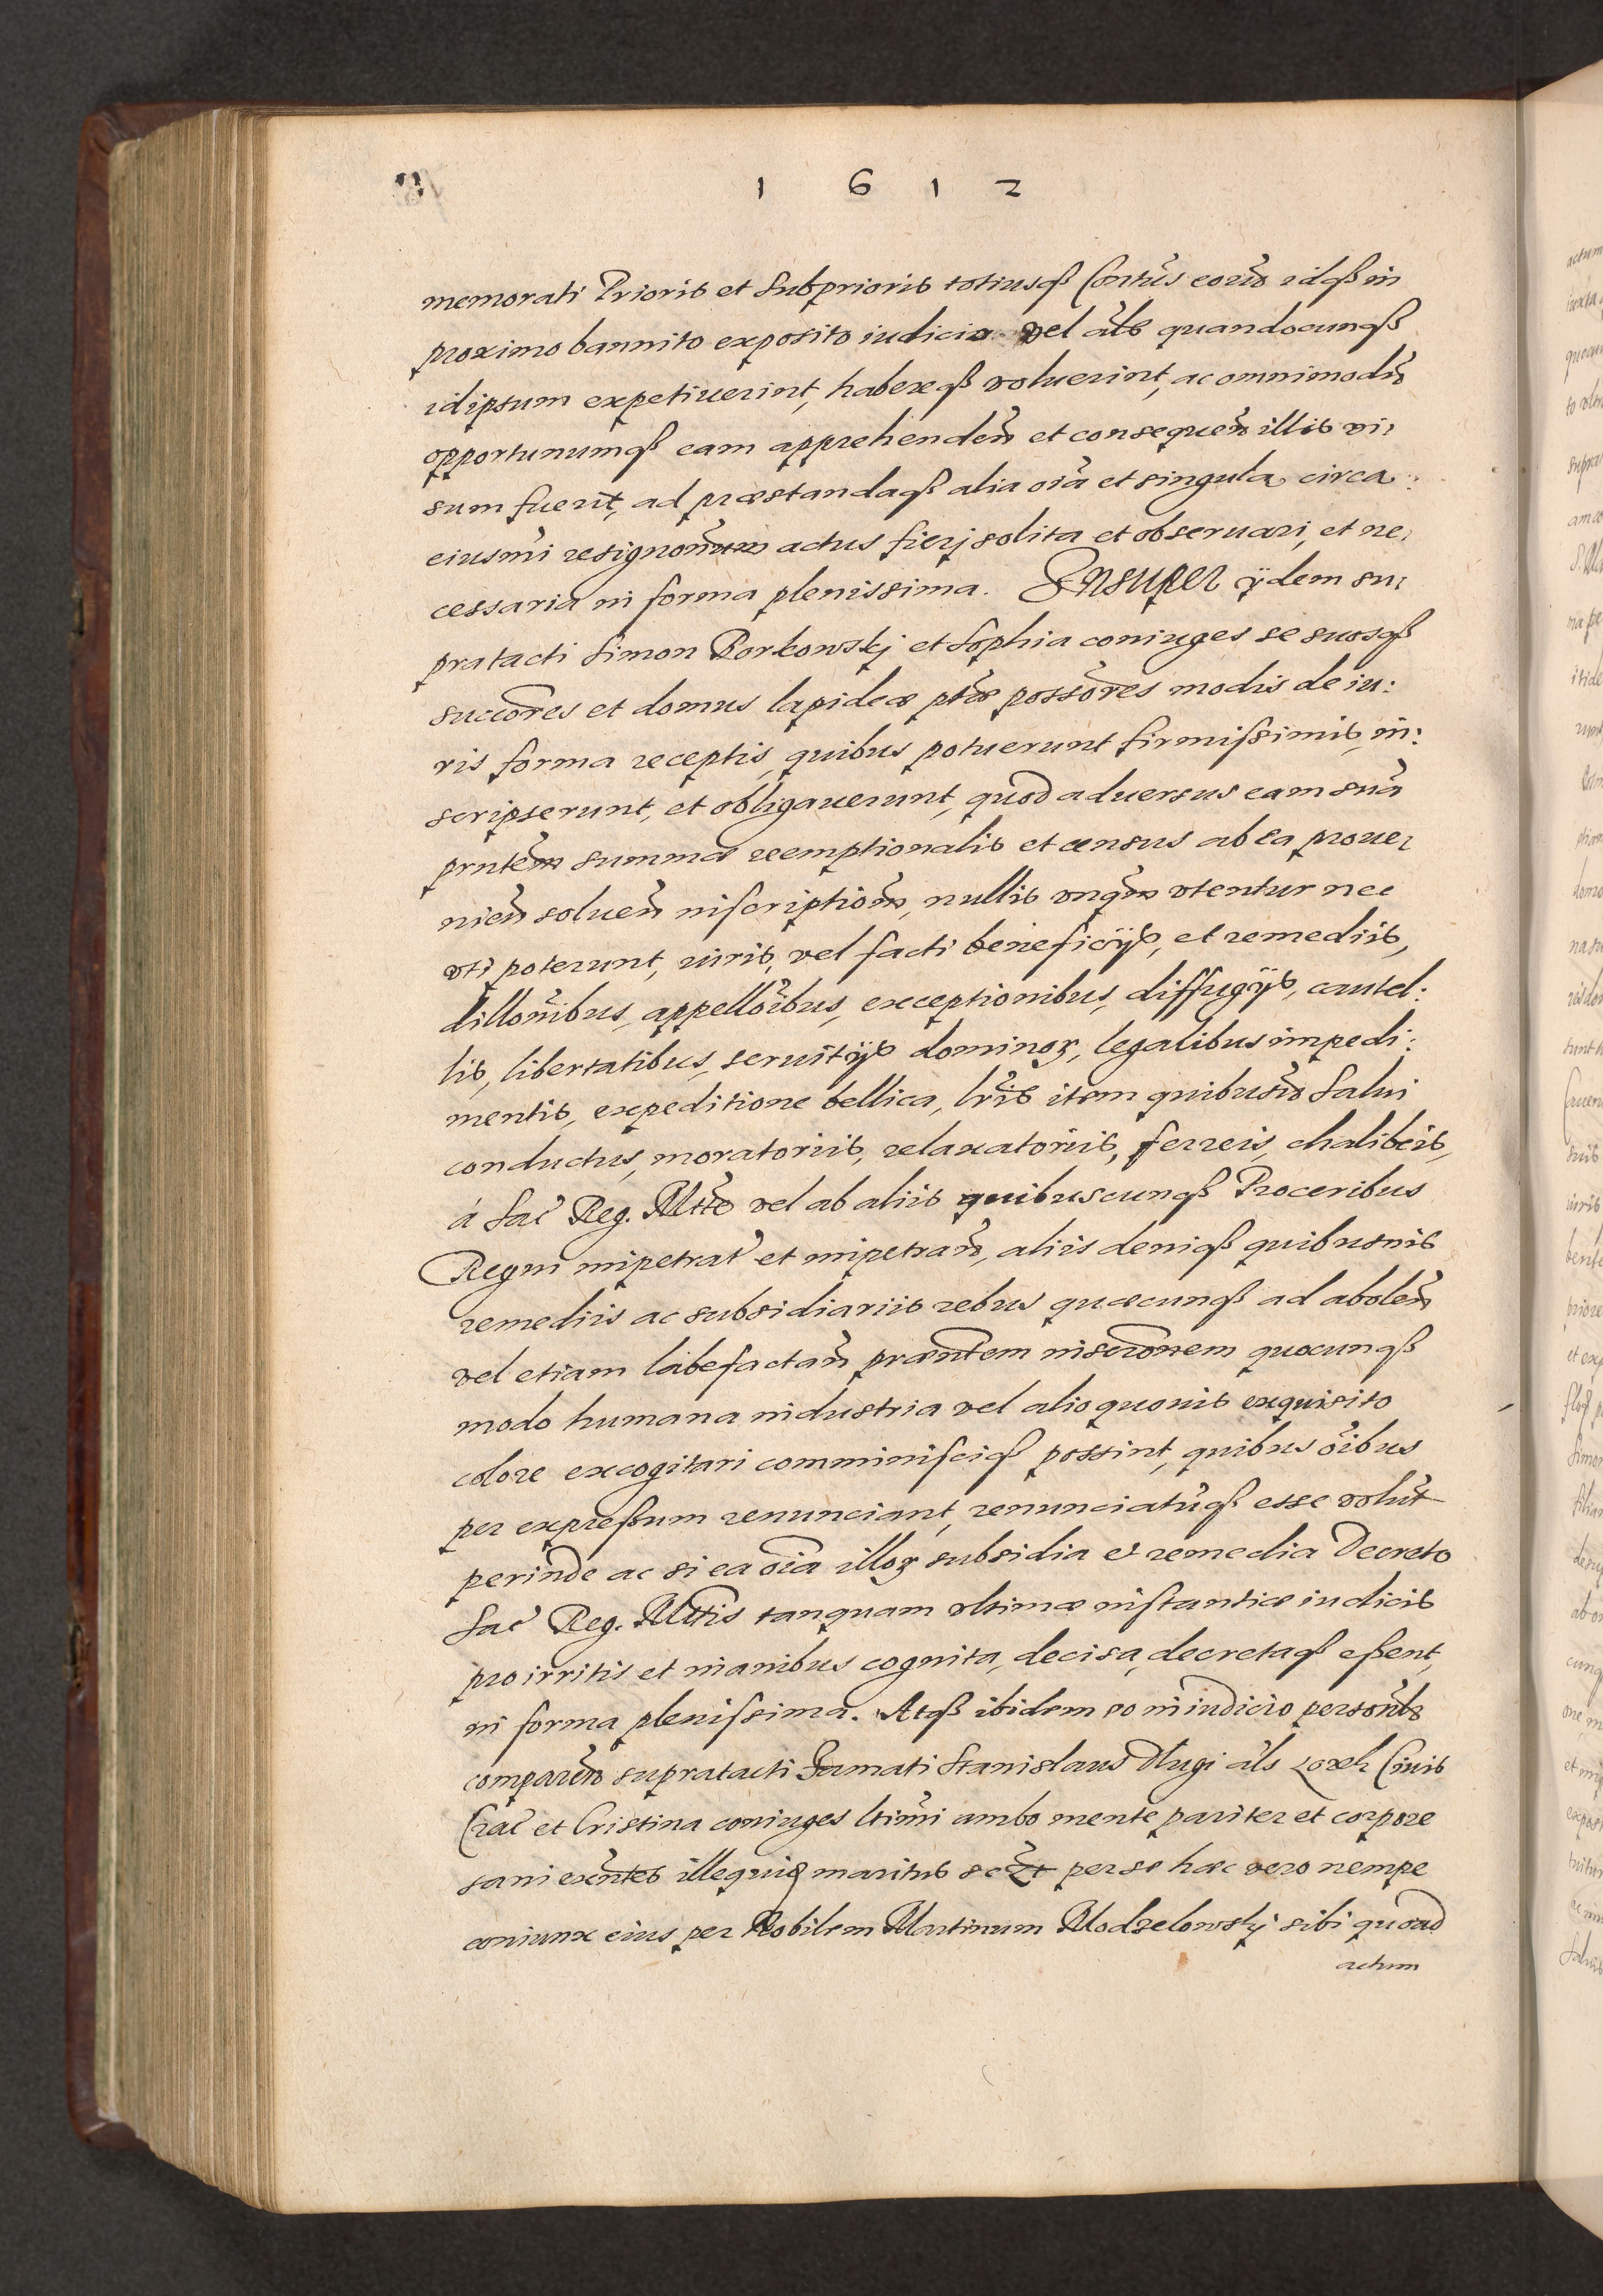 1 6 1 2
memorati Prioris et Subprioris totiusqß Contūs eorūd idqß in
proximo bannito exposito iudicio vel āls quandocunqß
idipsum expetiuerint, habereqß voluerint, ac omnimodū
opportunumqß eam apprehendeñ et consequeñ illis vi:
sum fuerit, ad præstandaqß alia oīa et singula circa
eiusm̄i resignōnum actus fierj solita et obseruari, et ne:
cessaria in forma plenissima. Insuper ijdem su:
pratacti Simon Borkowskj et Sophia coniuges se suosqß
succōres et domus lapideæ ptæ possōres modis de iu:
ris forma receptis, quibus potuerunt firmissimis, in:
scripserunt, et obligauerunt, quod aduersus eam suā
prntem summæ reemptionalis et census ab ea proue:
nieñ solueñ inscriptiōem, nullis vnqm vtentur nec
vti poterunt, iuris, vel facti beneficijs, et remediis,
dillōnibus, appellōibus, exceptionibus, diffugijs, cautel:
lis, libertatibus, seruitijs dominoꝝ, legalibus impedi:
mentis, expeditione bellica, lris item quibusuis Salui
conductus, moratoriis, relaxatoriis, ferreis, chalibeis,
á Sac Reg. Mtte vel ab aliis quibuscunqß Proceribus
Regni impetrat et impetrañ, aliis deniqß quibusuis
remediis ac subsidiariis rebus quæcunqß ad aboleñ
vel etiam labefactañ præntem inscrōnem quocunqß
modo humana industria vel alio quouis exquisito
colore excogitari comminisciqß possint, quibus ōibus
per expressum renunciant, renunciatūqß esse volūt
perinde ac si ea oīa illoꝝ subsidia et remedia Decreto
Sac Reg. Mttis tanquam vltimæ instantiæ iudicis
pro irritis et inanibus cognita, decisa, decretaqß essent,
in forma plenissima. Atqß ibidem eo in iudicio personlr
compareñ supratacti Famati Stanislaus Dlugi āls Civis
Crac et Cristina coniuges ltimi ambo mente pariter et corpore
sani exñtes ille maritus per se hæc vero nempe
coniunx eius per Nobilem Martinum Modzelowskj sibi quoad
actum